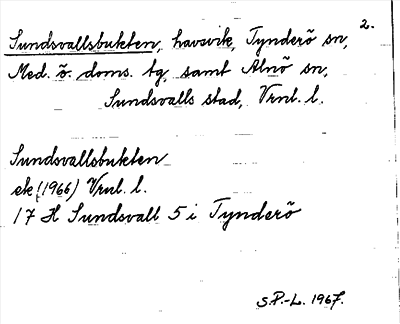 2.
Sundsvallsbukten, havsvik, Tynderö sn,
Med. ö. doms. tg, samt Alnö sn,
Sundsvalls stad, Vrnl. l.
Sundsvallsbukten
ek (1966) Vrnl. l.
17 H Sundsvall 5 i Tynderö
S.P.-L. 1967.